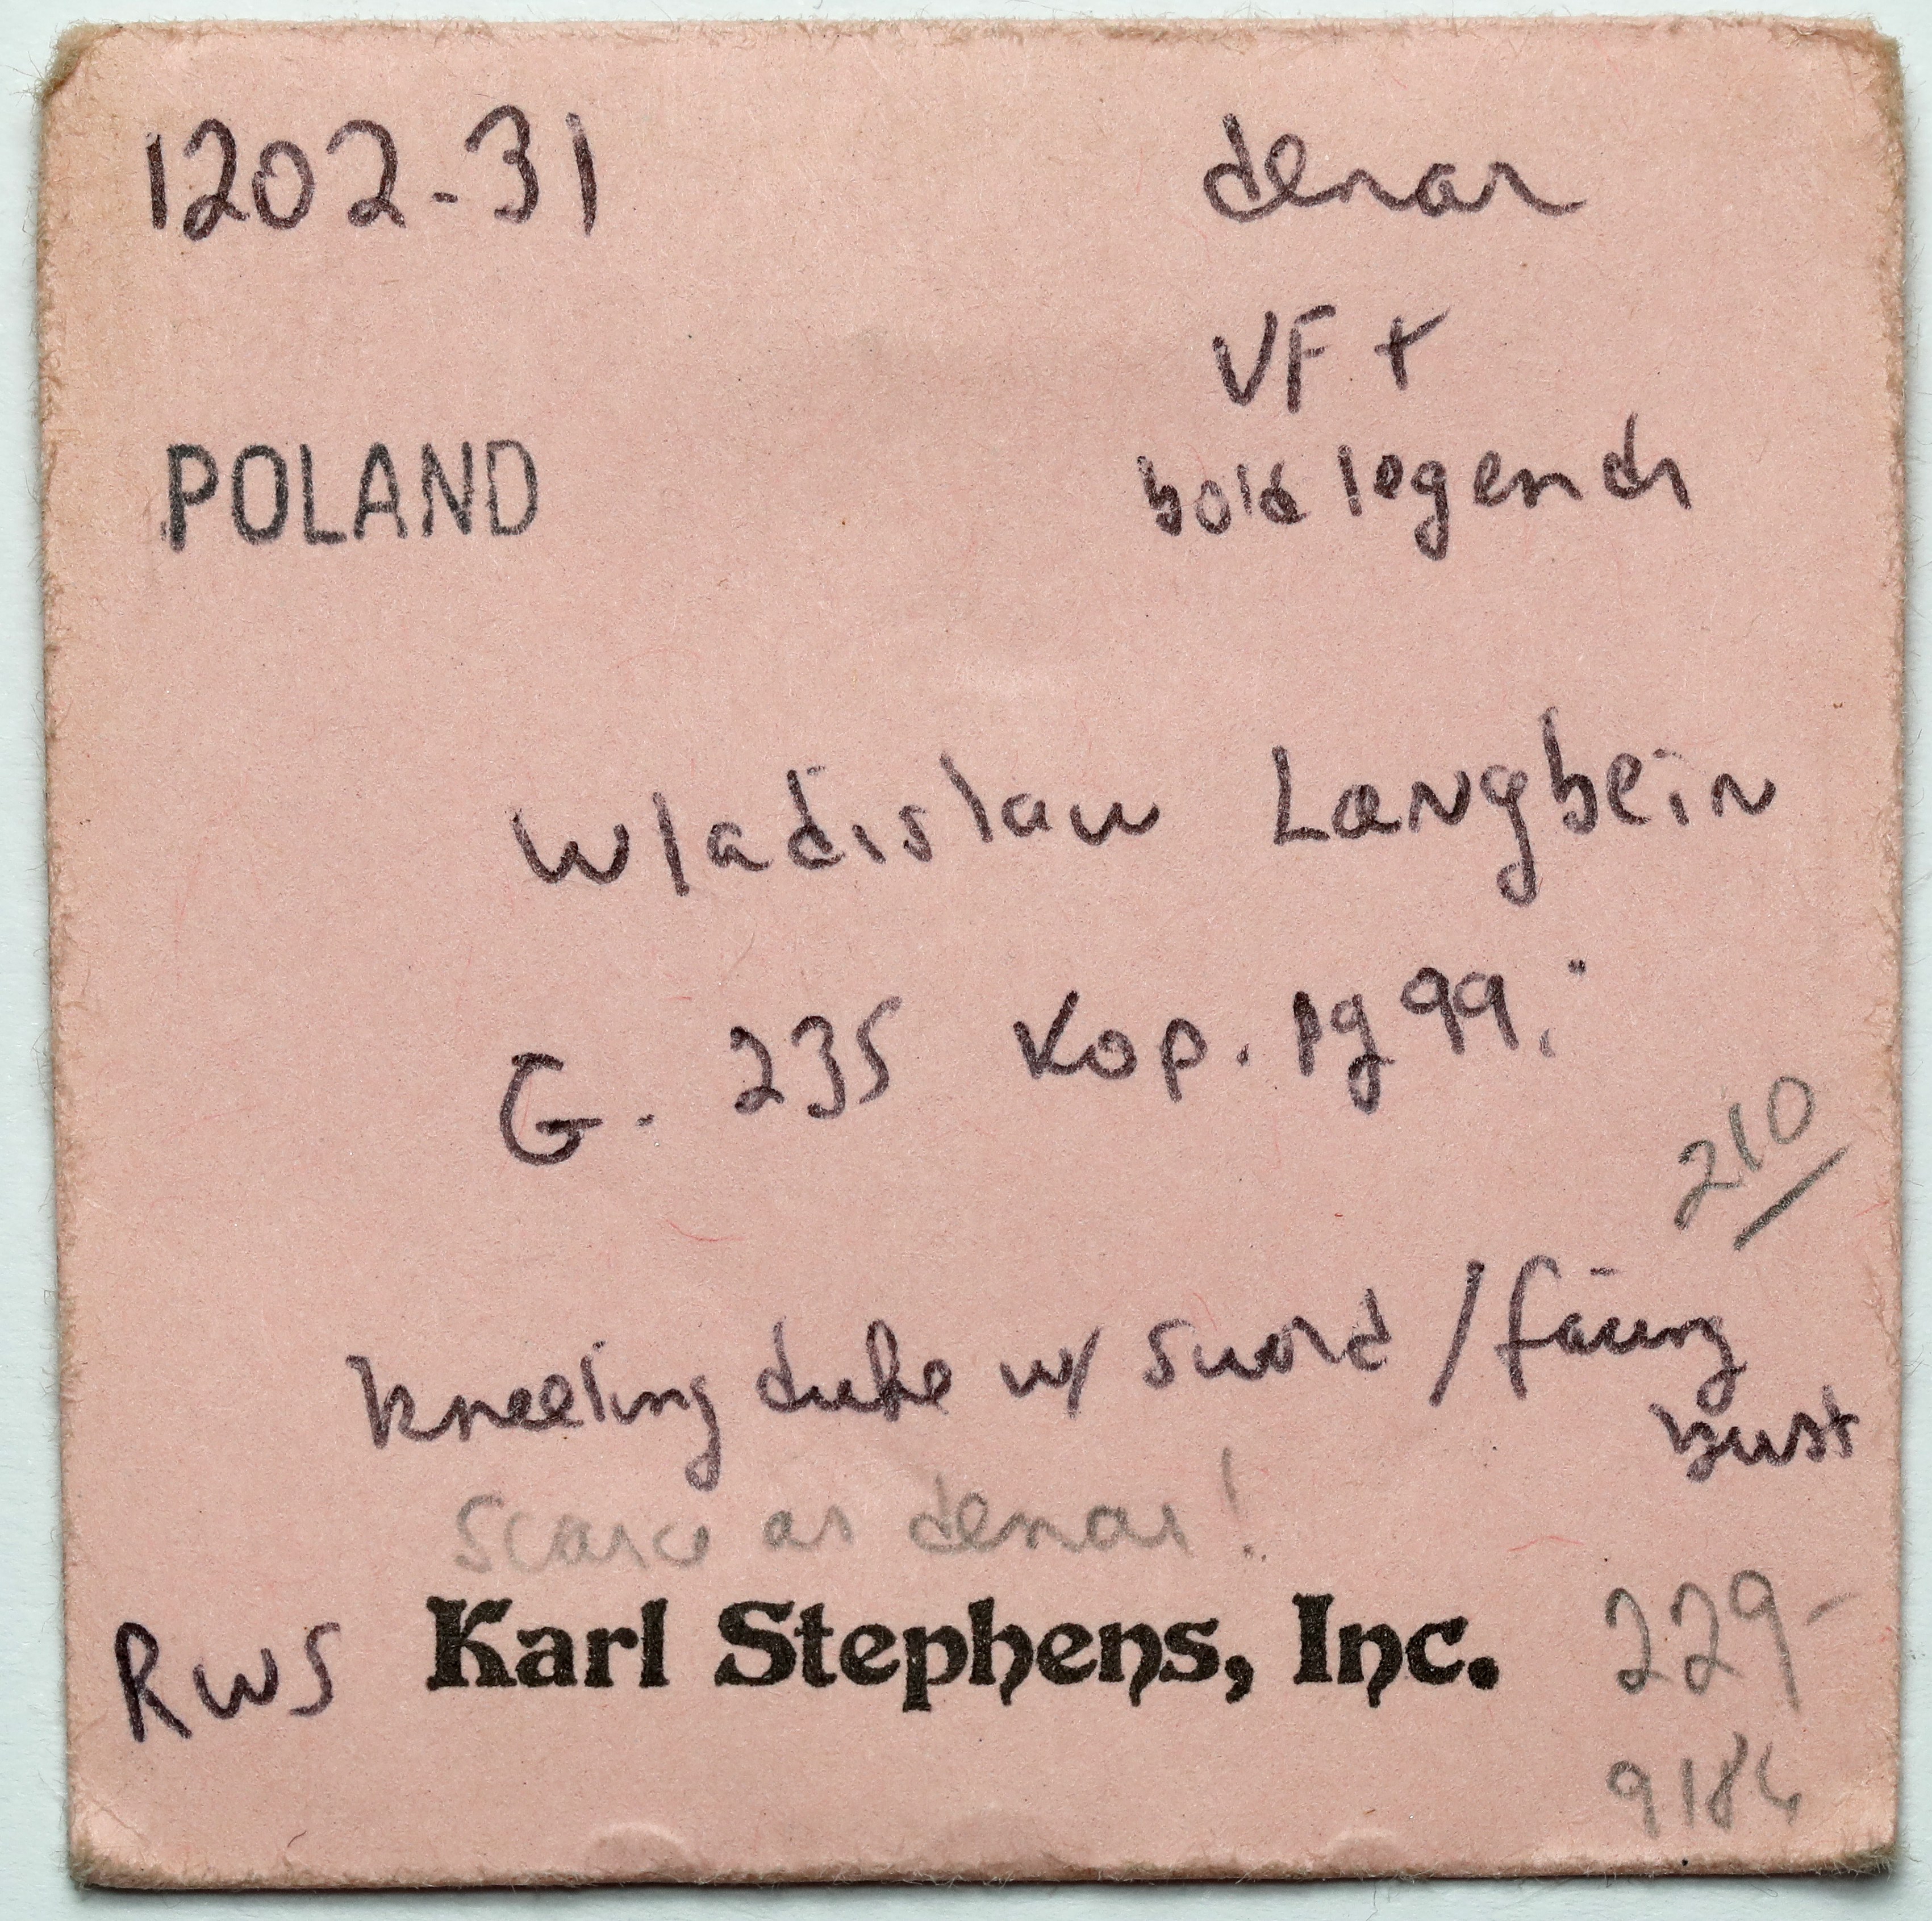 1202-31 denar
VF +
POLAND bold legends
Wladislaw Langbein
G. 235 Kop. pg 99.i
210
kneeling duke w/ sword / facing
bust
scarce as denar!
RWS Karl Stephens, Inc. 229-
9184